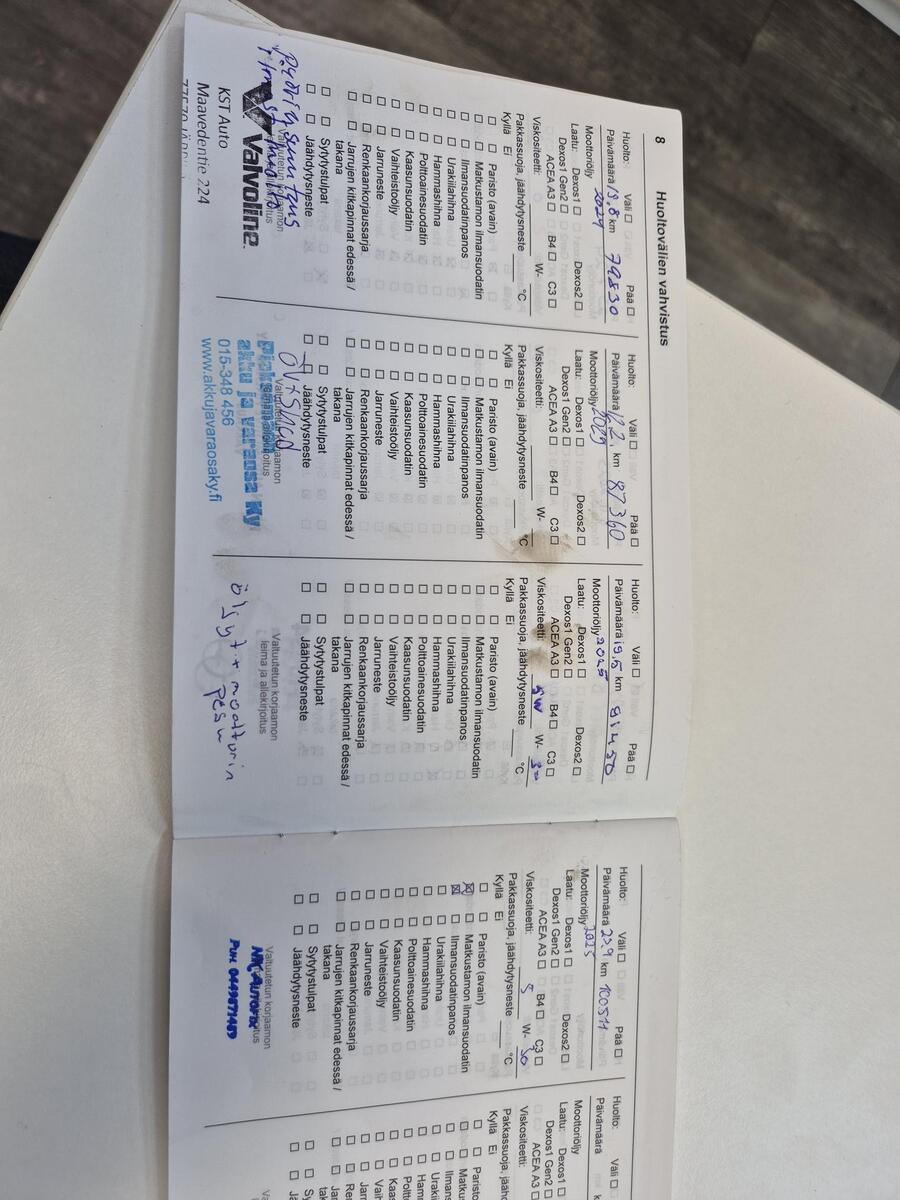 8 Huoltovälien vahvistus
Huolto: Väli Pää
Päivämäärä 19.8 km 79830
Moottoriöljy 2024
Laatu: Dexos1 Dexos2
Dexos1 Gen2
ACEA A3 B4 C3
Viskositeetti: W-
Pakkassuoja, jäähdytysneste °C
Kyllä Ei
Paristo (avain)
Matkustamon ilmansuodatin
Ilmansuodatinpanos
Urakiilahihna
Hammashihna
Polttoainesuodatin
Kaasunsuodatin
Vaihteistoöljy
Jarruneste
Renkaankorjaussarja
Jarrujen kitkapinnat edessä /
takana
Sytytystulpat
Jäähdytysneste
Valtuutetun korjaamon
Valvoline
KST Auto
Maavedentie 224
Huolto: Väli Pää
Päivämäärä km 87360
Moottoriöljy
Laatu: Dexos1 Dexos2
Dexos1 Gen2
ACEA A3 B4 C3
Viskositeetti: W-
Pakkassuoja, jäähdytysneste °C
Kyllä Ei
Paristo (avain)
Matkustamon ilmansuodatin
Ilmansuodatinpanos
Urakiilahihna
Hammashihna
Polttoainesuodatin
Kaasunsuodatin
Vaihteistoöljy
Jarruneste
Renkaankorjaussarja
Jarrujen kitkapinnat edessä /
takana
Sytytystulpat
Jäähdytysneste
Valtuutetun korjaamon
akku ja varaosa Ky
015-348 456
www.akkujavaraosaky.fi
Huolto: Väli Pää
Päivämäärä 19.5 km 91450
Moottoriöljy 2025
Laatu: Dexos1 Dexos2
Dexos1 Gen2
ACEA A3 B4 C3
Viskositeetti: 5W W- 30
Pakkassuoja, jäähdytysneste °C
Kyllä Ei
Paristo (avain)
Matkustamon ilmansuodatin
Ilmansuodatinpanos
Urakiilahihna
Hammashihna
Polttoainesuodatin
Kaasunsuodatin
Vaihteistoöljy
Jarruneste
Renkaankorjaussarja
Jarrujen kitkapinnat edessä /
takana
Sytytystulpat
Jäähdytysneste
Valtuutetun korjaamon
leima ja allekirjoitus
öljyt + moottorin
pesu
Huolto: Väli Pää
Päivämäärä 25.9 km 100511
Moottoriöljy 2025
Laatu: Dexos1 Dexos2
Dexos1 Gen2
ACEA A3 B4 C3
Viskositeetti: 5 W- 30
Pakkassuoja, jäähdytysneste °C
Kyllä Ei
Paristo (avain)
Matkustamon ilmansuodatin
Ilmansuodatinpanos
Urakiilahihna
Hammashihna
Polttoainesuodatin
Kaasunsuodatin
Vaihteistoöljy
Jarruneste
Renkaankorjaussarja
Jarrujen kitkapinnat edessä /
takana
Sytytystulpat
Jäähdytysneste
Valtuutetun korjaamon
PUH. 0449871459
Huolto: Väli
Päivämäärä
Moottoriöljy
Laatu: Dexos1
Dexos1 Gen2
ACEA A3
Viskositeetti:
Pakkassuoja,
Kyllä Ei